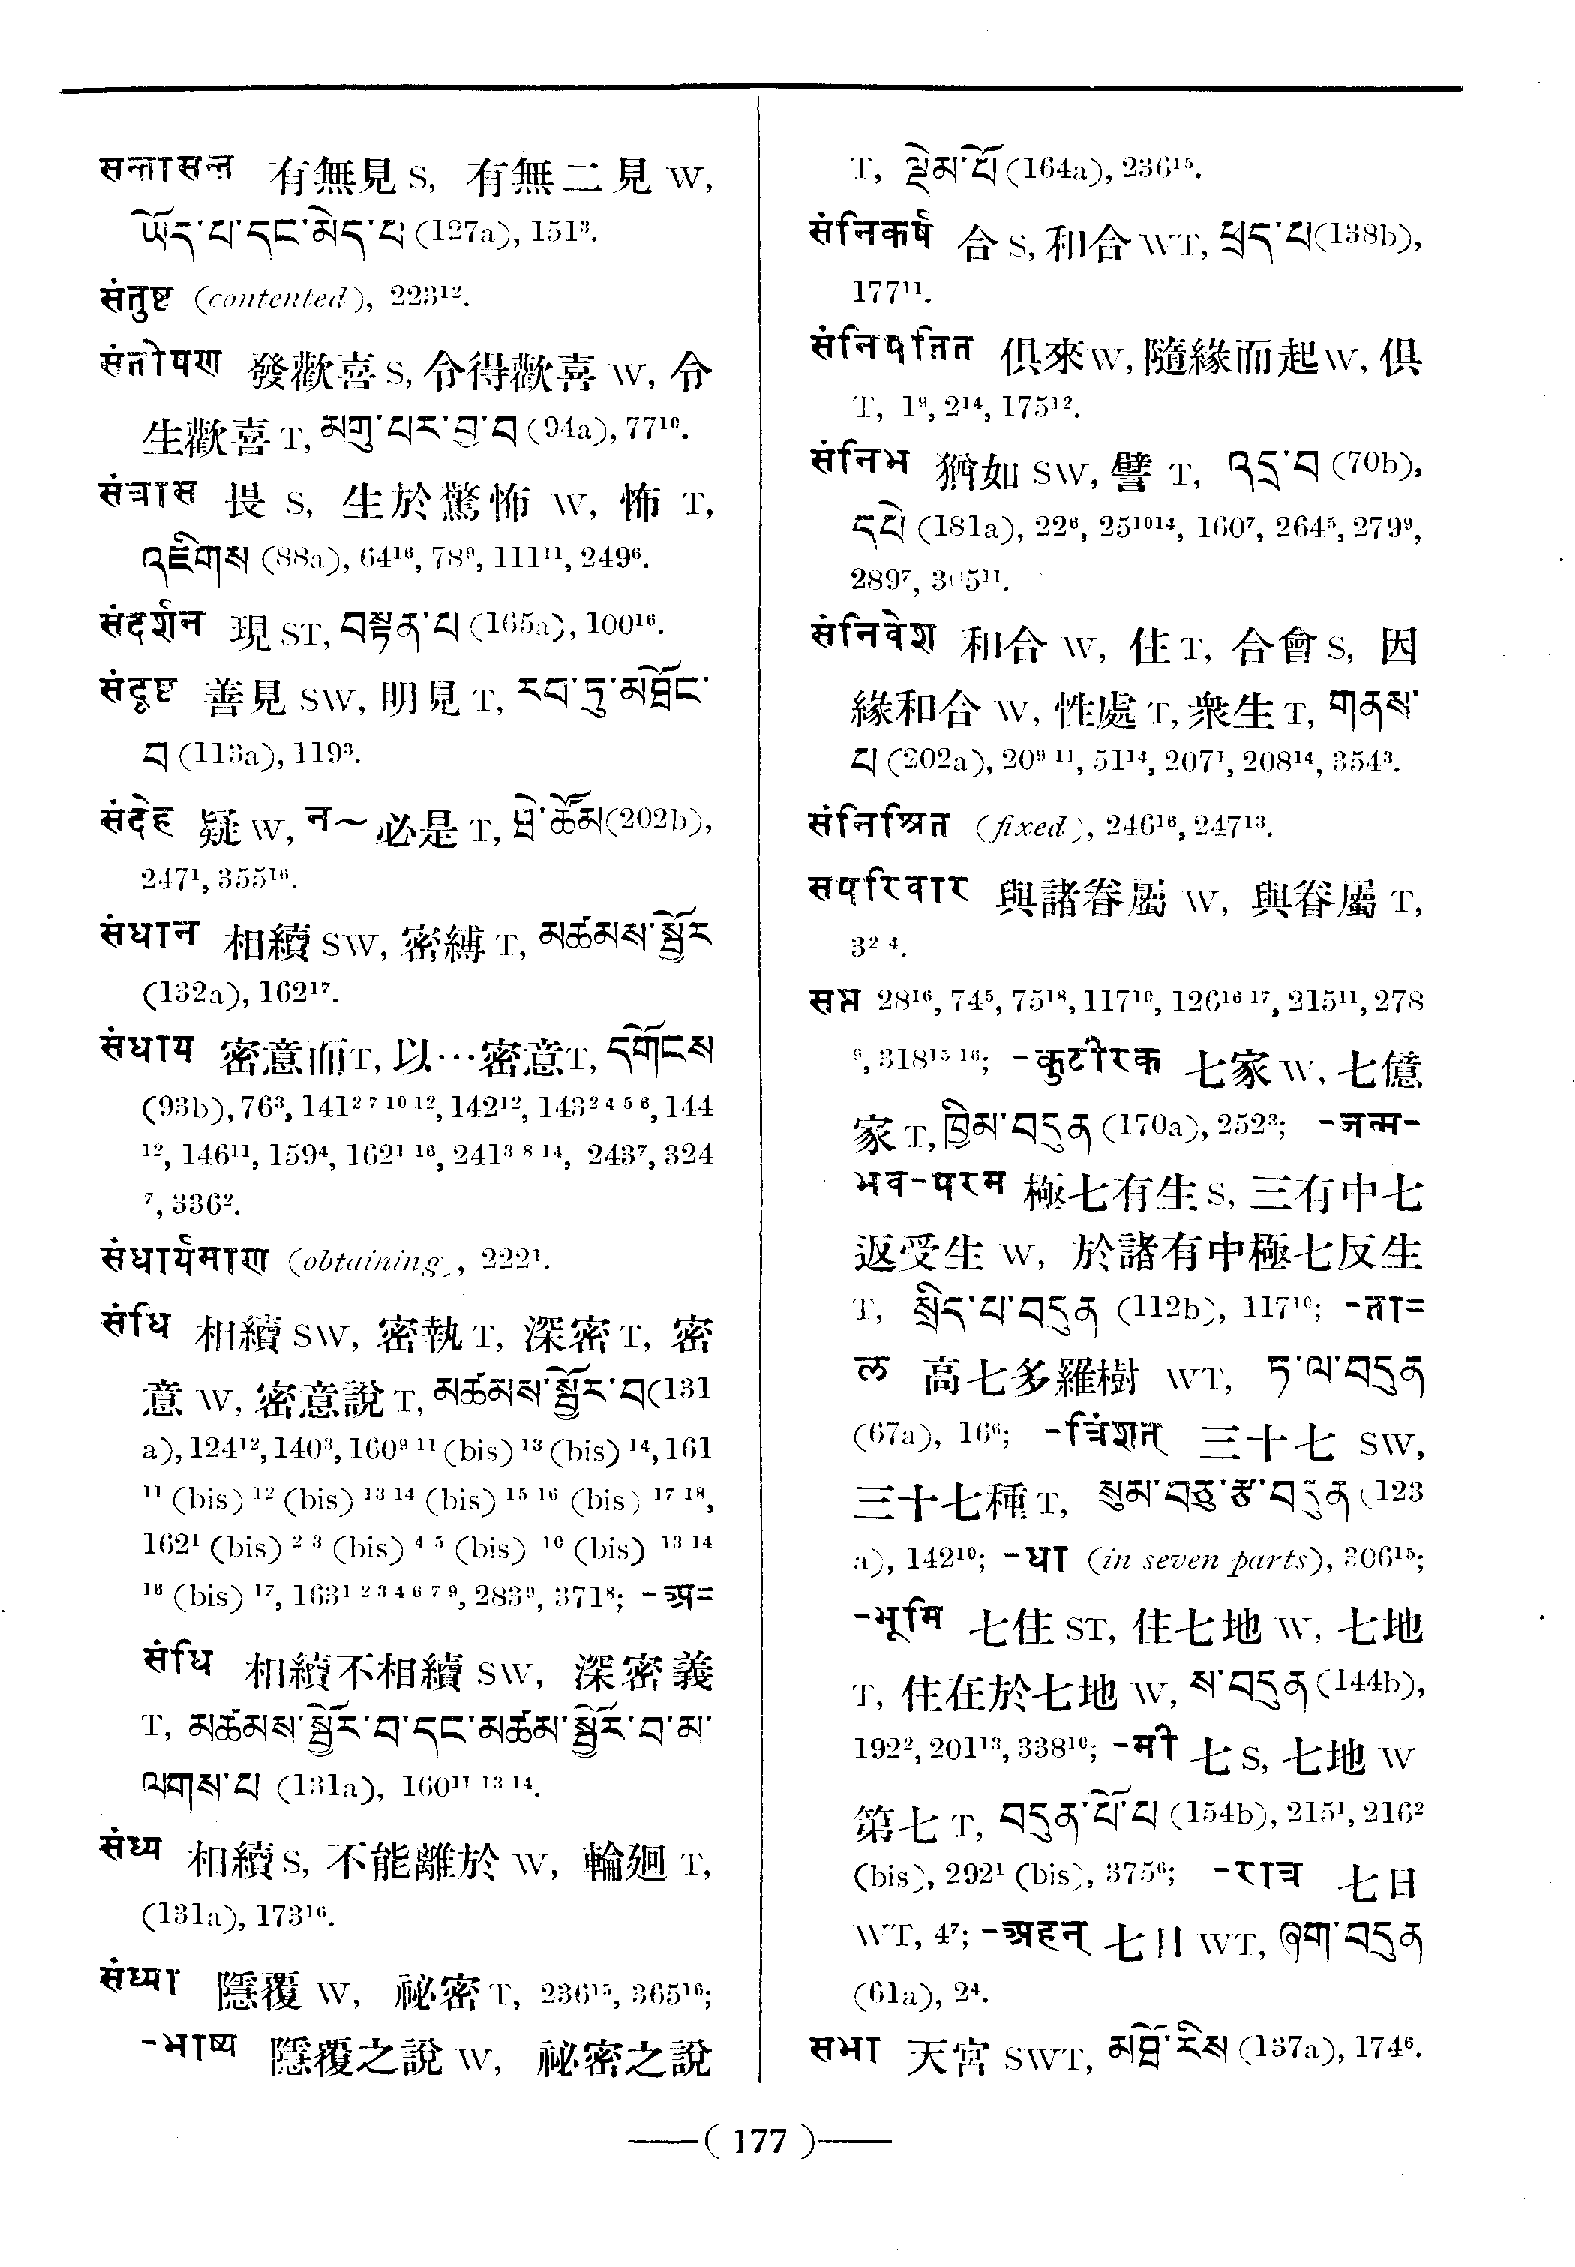 सन्तासन्त 有無見 S, 有無二見 W,
ཡོད་པ་དང་མེད་པ (127a), 151³.
संतुष्ट (contented), 223¹².
संतोषण 發歡喜 S, 令得歡喜 W, 令
生歡喜 T, མགུ་པར་བྱ་བ (94a), 77¹⁰.
संत्रास 畏 S, 生於驚怖 W, 怖 T,
འཇིགས (88a), 64¹⁶, 78⁹, 111¹¹, 249⁶.
संदर्शन 現 ST, བསྟན་པ (165a), 100¹⁶.
संदृष्ट 善見 SW, 明見 T, རབ་ཏུ་མཐོང་
བ (113a), 119³.
संदेह 疑 W, न～ 必是 T, ཐེ་ཚོམ (202b),
247¹, 355¹⁶.
संधान 相續 SW, 密縛 T, མཚམས་སྦྱོར
(132a), 162¹⁷.
संधाय 密意而T, 以…密意T, དགོངས
(93b), 76³, 141² ⁷ ¹⁰ ¹², 142¹², 143² ⁴ ⁵ ⁶, 144
¹², 146¹¹, 159⁴, 162¹ ¹⁶, 241³ ⁸ ¹⁴, 243⁷, 324
⁷, 336².
संधार्यमाण (obtaining), 222¹.
संधि 相續 SW, 密執 T, 深密 T, 密
意 W, 密意說 T, མཚམས་སྦྱོར་བ (131
a), 124¹², 140³, 160⁹ ¹¹ (bis) ¹³ (bis) ¹⁴, 161
¹¹ (bis) ¹² (bis) ¹³ ¹⁴ (bis) ¹⁵ ¹⁶ (bis) ¹⁷ ¹⁸,
162¹ (bis) ² ³ (bis) ⁴ ⁵ (bis) ¹⁰ (bis) ¹³ ¹⁴
¹⁶ (bis) ¹⁷, 163¹ ² ³ ⁴ ⁶ ⁷ ⁹, 283⁹, 371⁸; -अ=
संधि 相續不相續 SW, 深密義
T, མཚམས་སྦྱོར་བ་དང་མཚམ་སྦྱོར་བ་མ་
ལགས་པ (131a), 160¹¹ ¹³ ¹⁴.
संध्य 相續 S, 不能離於 W, 輪廻 T,
(131a), 173¹⁶.
संध्या 隱覆 W, 祕密 T, 236¹⁵, 365¹⁶;
-भाष्य 隱覆之說 W, 祕密之說
T, ལྡེམ་པོ (164a), 236¹⁵.
संनिकर्ष 合 S, 和合 WT, ཕྲད་པ (138b),
177¹¹.
संनिपतित 俱來 W, 隨緣而起 W, 俱
T, 1⁹, 2¹⁴, 175¹².
संनिभ 猶如 SW, 譬 T, འདྲ་བ (70b),
དཔེ (181a), 22⁶, 25¹⁰ ¹⁴, 160⁷, 264⁵, 279⁹,
289⁷, 365¹¹.
संनिवेश 和合 W, 住 T, 合會 S, 因
緣和合 W, 性處 T, 衆生 T, གནས་
པ (202a), 20⁹ ¹¹, 51¹⁴, 207¹, 208¹⁴, 354³.
संनिश्रित (fixed), 246¹⁶, 247¹³.
सपरिवार 與諸眷屬 W, 與眷屬 T,
3² ⁴.
सप्त 28¹⁶, 74⁵, 75¹⁸, 117¹⁰, 126¹⁶ ¹⁷, 215¹¹, 278
⁹, 318¹⁵ ¹⁶; -कुटीरक 七家 W, 七億
家 T, ཁྱིམ་བདུན (170a), 252³; -जन्म-
भव-परम 極七有生 S, 三有中七
返受生 W, 於諸有中極七反生
T, སྲིད་པ་བདུན (112b), 117¹⁰; -ता=
ल 高七多羅樹 WT, ཏ་ལ་བདུན
(67a), 16⁶; -त्रिंशत् 三十七 SW,
三十七種 T, སུམ་བཅུ་རྩ་བདུན (123
a), 142¹⁰; -धा (in seven parts), 306¹⁵;
-भूमि 七住 ST, 住七地 W, 七地
T, 住在於七地 W, ས་བདུན (144b),
192², 201¹³, 338¹⁰; -मी 七 S, 七地 W
第七 T, བདུན་པོ་པ (154b), 215¹, 216²
(bis), 292¹ (bis), 375⁶; -रात्र 七日
WT, 4⁷; -अहन् 七日 WT, ཞག་བདུན
(61a), 2⁴.
सभा 天宮 SWT, མཐོ་རིས (137a), 174⁶.
—( 177 )—